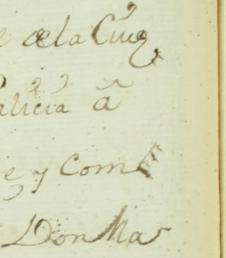 de la Cruz
alicia a
e y Com
Don Mar